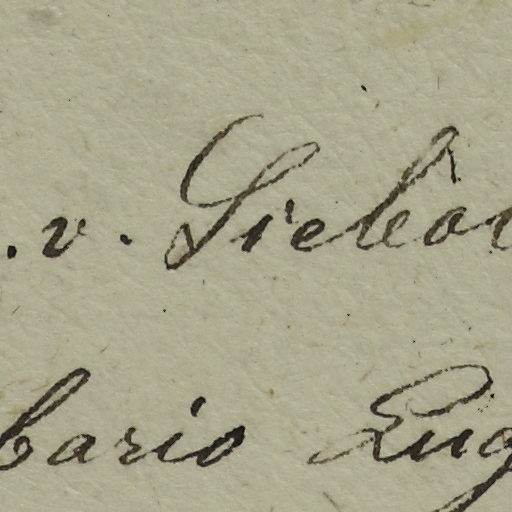 . v. Siebo
bario Lug